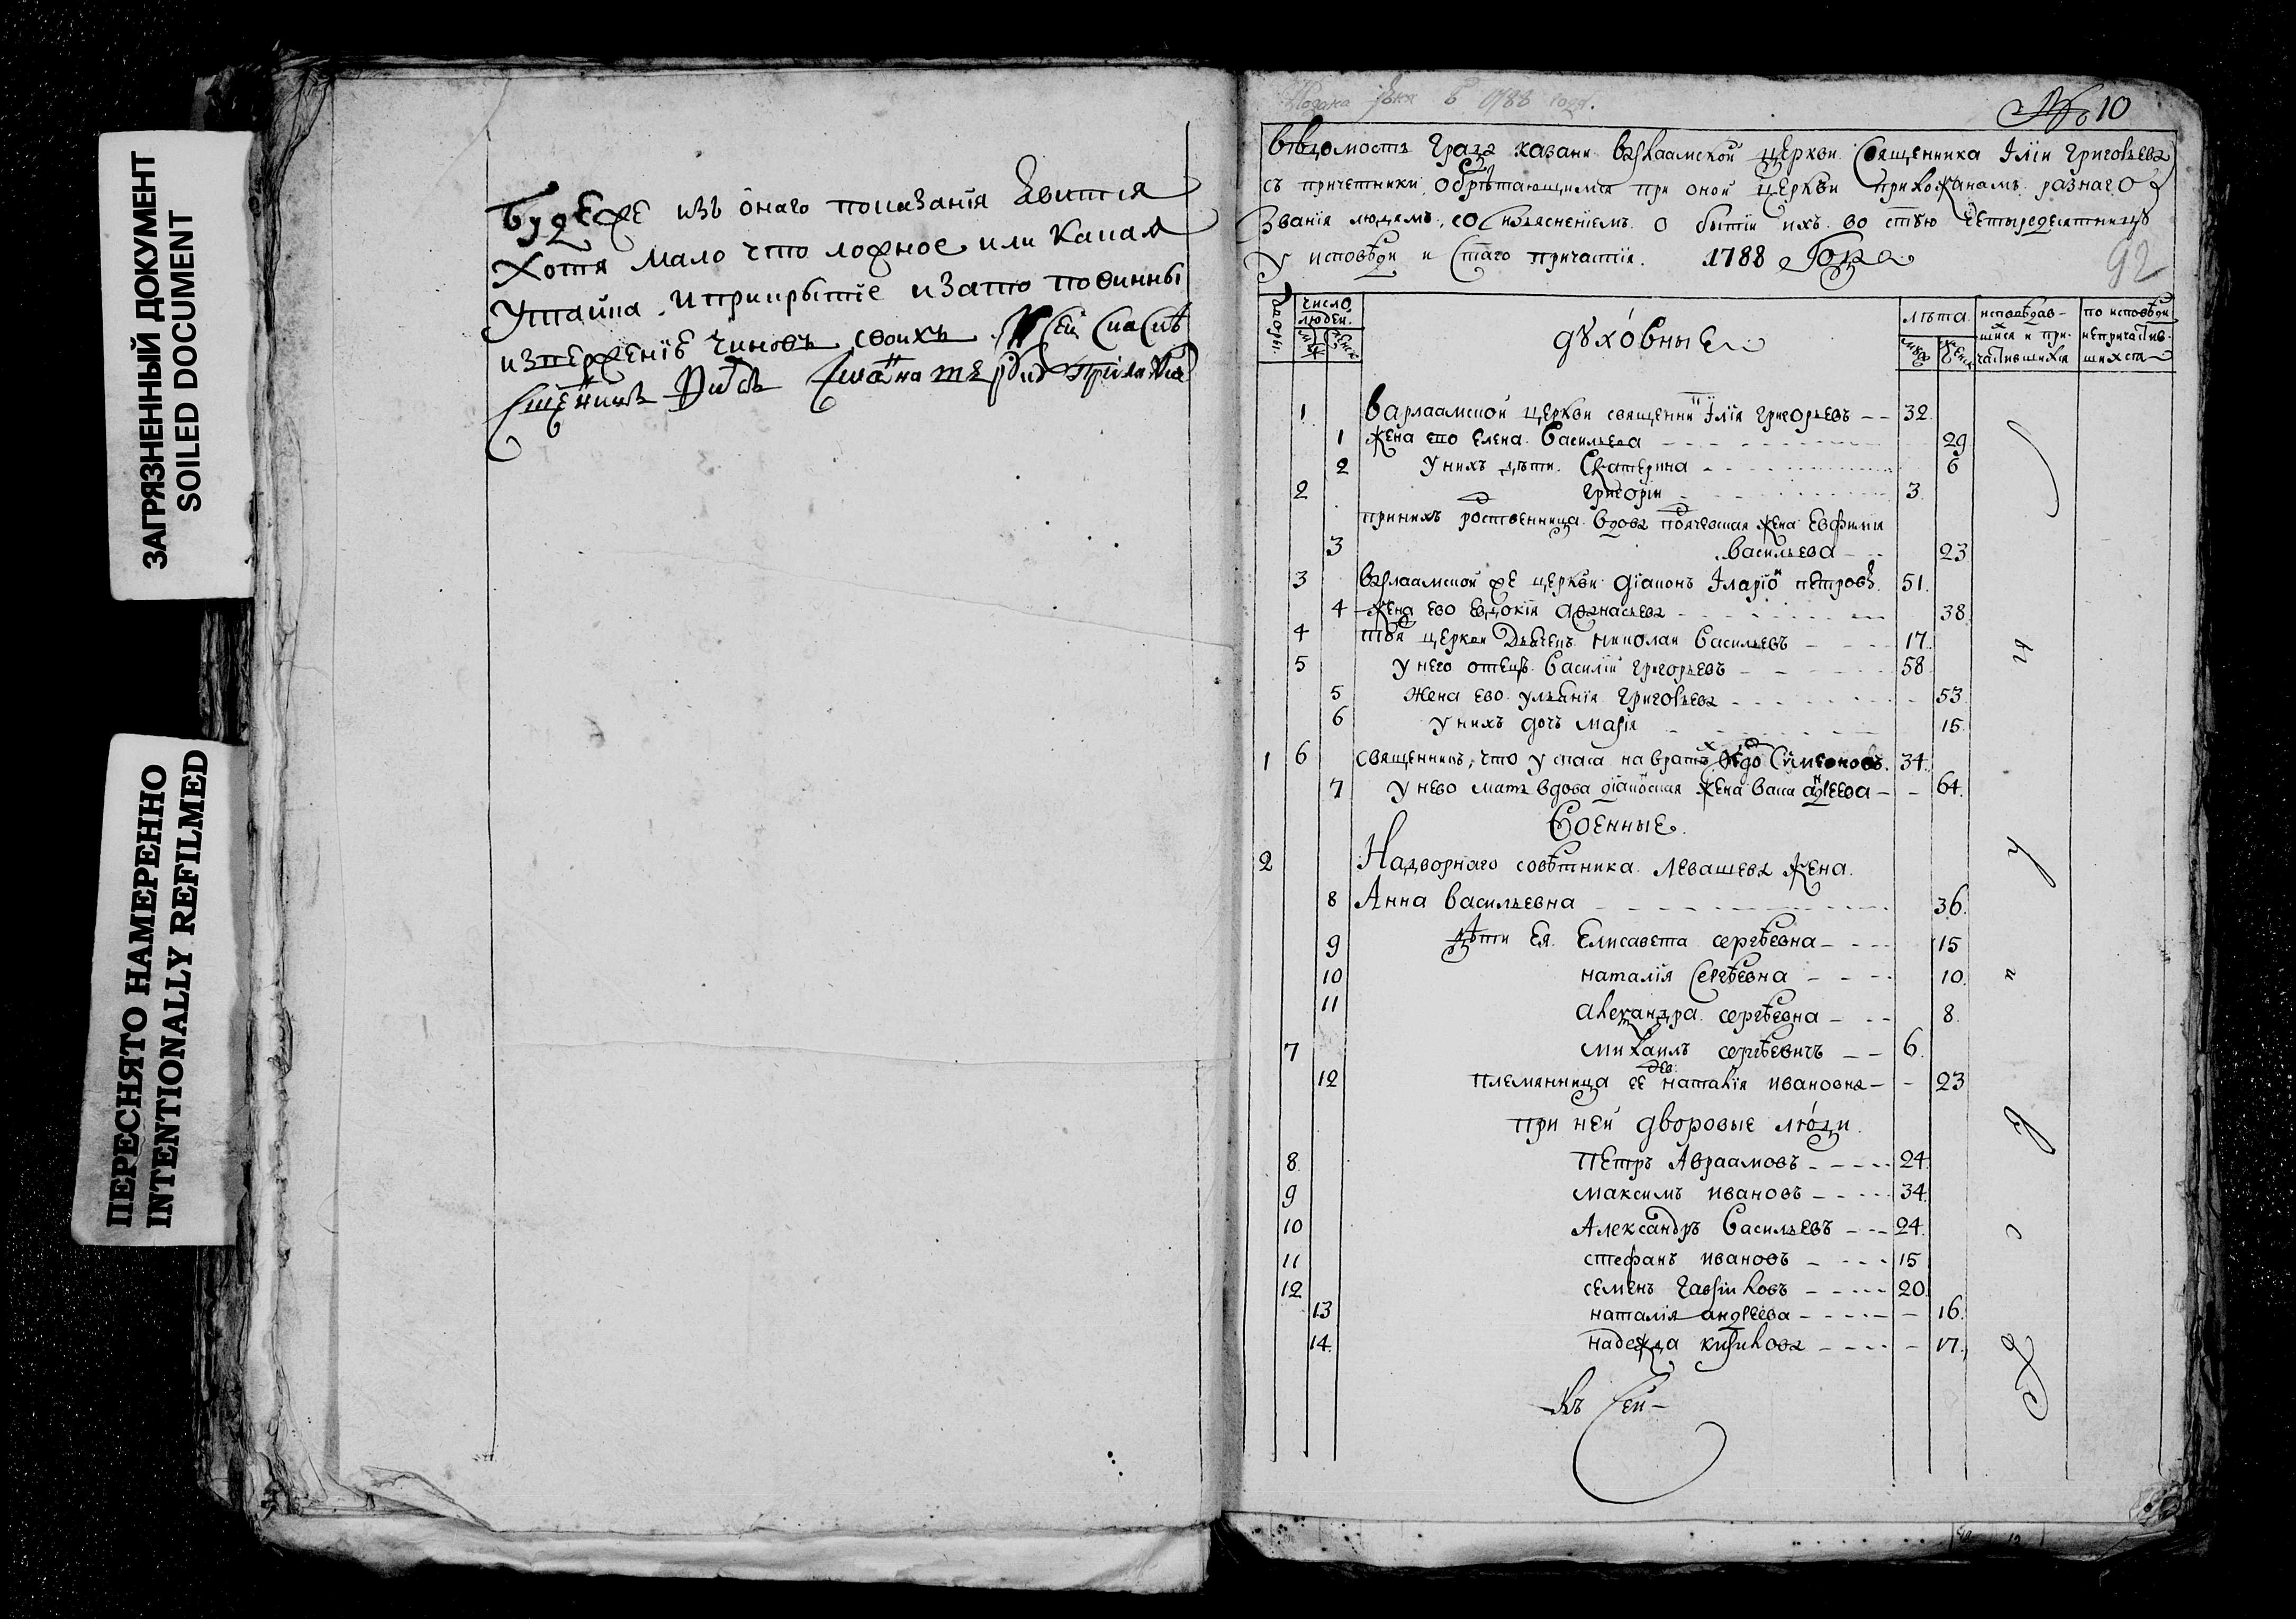 ЗАГРЯЗНЕННЫЙ ДОКУМЕНТ
SOILED DOCUMENT
ПЕРЕСНЯТО НАМЕРЕННО
INTENTIONALLY REFILMED
Будеже изъ онаго показанія явится
Хотя мало что ложное или какая
Утайка и прикрытіе и зато повинны
изверженїе чиновъ своихъ
Подана 1788 года.
№ 10
Вѣдомость града казани варлаамской церкви священника Иліи григорьева
съ причетники обрѣтающимся при оной церкви прихожанамъ разнаго
званія людямъ, со изъясненіемъ о бытіи ихъ во стую четыредесятницу
у исповѣди и стаго причастія. 1788 Года
92
Дворы. число людей. духо́вные лѣта исповѣдав- по исповѣди
мужс женс мужс женс шихся и при- непричастив-
частившихся шихся
1 варлаамской церкви священник Илїя григорьевъ 32
1 жена ево елена васильева 29
2 у нихъ дѣти Екатерина 6
2 григоріи 3
при нихъ родственница вдова жена Евфимия
3 васильева 23
3 варлаамской же церкви діаконъ Иларіон петровъ 51
4 жена ево евдокія афанасьева 38
4 той церкви дьячекъ николаи васильевъ 17
5 у него отецъ василїи григорьевъ 58
5 жена ево ульянїя григорьева 53
6 у нихъ дочь марїя 15
1 6 священникъ, что у спаса на вратах Ѳедо Симеоновъ 34
7 у нево мать вдова діаконская жена васи андреева 64
Военные
2 Надворнаго совѣтника Левашева жена
8 Анна васильевна 36
9 дѣти ея Елисавета сергѣевна 15
10 наталїя сергѣевна 10
11 александра сергѣевна 8
7 михаилъ сергѣевичъ 6
12 племянница ее дев: наталїя ивановна 23
при ней дворовые лю́ди
8 Петръ Авраамовъ 24
9 максимъ ивановъ 34
10 Александръ васильевъ 24
11 стефанъ ивановъ 15
12 семенъ гавриловъ 20
13 наталія андреева 16
14 надежда кирилова 17
Къ сей